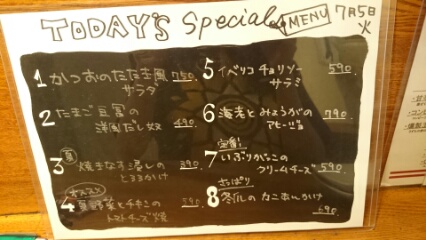 TODAY'S Special MENU 7月5日
火
1 かつおのたたき風 750
サラダ
2 たまご豆腐の
洋風だし奴 490
3 夏 焼きなす浸しの 390
とろろかけ
4 オススメ
夏野菜とチキンの 590
トマトチーズ焼
5 イベリコチョリソー 590
サラミ
6 海老とみょうがの 790
アヒージョ
7 定番!
いぶりがっこの
クリームチーズ 590
8 さっぱり
冬瓜のカニあんかけ
690